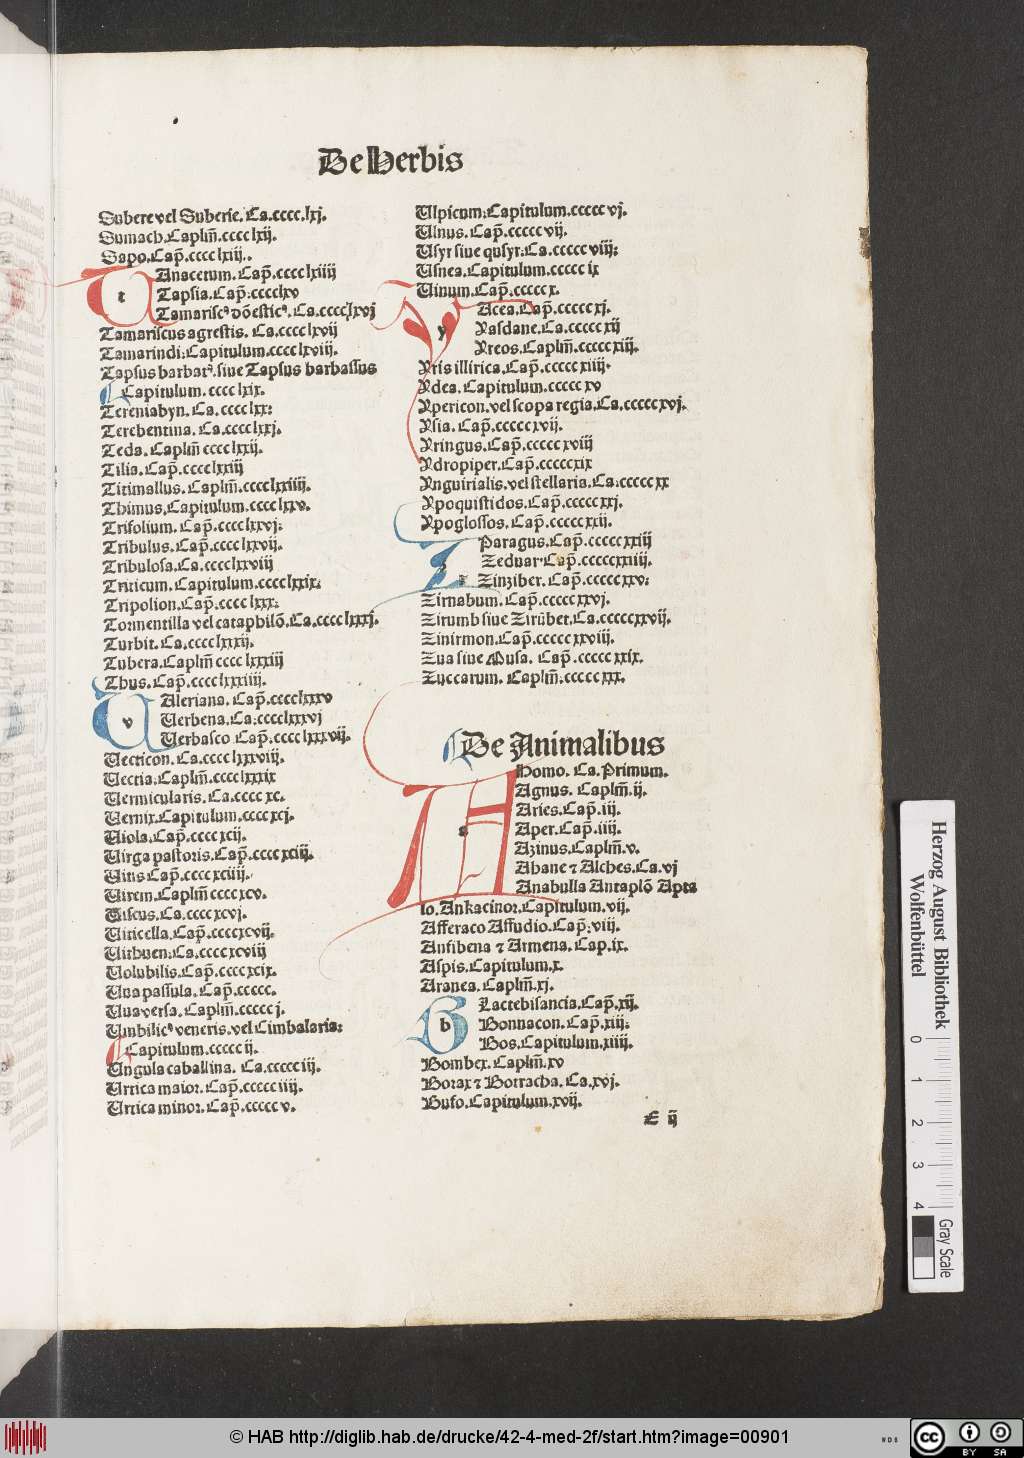 De Herbis
Subere vel Suberie. Ca. cccc.lxj.
Sumach. Caplm̄. cccc lxij.
Sapo. Cap̄. cccc lxiij..
t Anacetum. Cap̄. cccc lxiiij
Tapsia. Cap̄. cccclxv
Tamariscꝰ dōesticꝰ. Ca. cccc lxvj
Tamariscus agrestis. Ca. cccc lxvij
Tamarindi. Capitulum. cccc lxviij.
Tapsus barbatꝰ. siue Tapsus barbassus
Capitulum. cccc lxix.
Tereniabyn. Ca. cccc lxx.
Terebentina. Ca. cccc lxxj.
Teda. Caplm̄ cccc lxxij.
Tilia. Cap̄. cccc lxxiij
Titimallus. Caplm̄. cccc lxxiiij.
Thimus. Capitulum. cccc lxxv.
Trifolium. Cap̄. cccc lxxvj.
Tribulus. Cap̄. cccc lxxvij.
Tribulosa. Ca. cccc lxxviij
Triticum. Capitulum. cccc lxxix.
Tripolion. Cap̄. cccc lxxx.
Tormentilla vel cataphilō. Ca. cccc lxxxj.
Turbit. Ca. cccc lxxxij.
Tubera. Caplm̄ cccc lxxxiij
Thus. Cap̄. cccc lxxxiiij.
v Aleriana. Cap̄. cccc lxxxv
Uerbena. Ca. cccc lxxxvj
Uerbasco Cap̄. cccc lxxxvij.
Uecticon. Ca. cccc lxxxviij.
Uectia. Caplm̄. cccc lxxxix
Uermicularis. Ca. cccc xc.
Uernix. Capitulum. cccc xcj.
Uiola. Cap̄. cccc xcij.
Uirga pastoris. Cap̄. cccc xciij.
Uitis Cap̄. cccc xciiij.
Uitem. Caplm̄ cccc xcv.
Uiscus. Ca. cccc xcvj.
Uiticella. Cap̄. cccc xcvij.
Uithuen. Ca. cccc xcviij
Uolubilis. Cap̄. cccc xcix.
Uua passula. Cap̄. ccccc.
Uua versa. Caplm̄. ccccc j.
Umbilicꝰ veneris. vel Cimbalaria:
Capitulum. ccccc ij.
Ungula caballina. Ca. ccccc iij.
Urtica maior. Cap̄. ccccc iiij.
Urtica minor. Cap̄. ccccc v.
Ulpicum. Capitulum. ccccc vj.
Ulnus. Cap̄. ccccc vij.
Usyr siue qusyr. Ca. ccccc viij:
Usnea. Capitulum. ccccc ix
Uinum. Cap̄. ccccc x.
y Acea. Cap̄. ccccc xj.
Yasdane. Ca. ccccc xij
Yreos. Caplm̄. ccccc xiij.
Yris illirica. Cap̄. ccccc xiiij.
Ydea. Capitulum. ccccc xv
Ypericon. vel scopa regia. Ca. ccccc xvj.
Ysia. Cap̄. ccccc xvij.
Yringus. Cap̄. ccccc xviij
Ydropiper. Cap̄. cccccxix
Ynguirialis. vel stellaria. Ca. ccccc xx
Ypoquistidos. Cap̄. ccccc xxj.
Ypoglossos. Cap̄. ccccc xxij.
z Paragus. Cap̄. ccccc xxiij
Zeduar Cap̄. cccccxxiiij.
Zinziber. Cap̄. ccccc xxv:
Zirnabum. Cap̄. ccccc xxvj.
Zitumb siue Zirūbet. Ca. cccccxxvij.
Zinirmon. Cap̄. ccccc xxviij.
Zua siue Musa. Cap̄. ccccc xxix.
Zuccarum. Caplm̄. ccccc xxx.
De Animalibus
a Homo. Ca. Primum.
Agnus. Caplm̄. ij.
Aries. Cap̄. iij.
Aper. Cap̄. iiij.
Azinus. Caplm̄. v.
Ahane ⁊ Alches. Ca. vj
Anabulla Antaplō Apta
lo. Ankacinor. Capitulum. vij.
Afferaco Affudio. Cap̄. viij.
Anfibena ⁊ Armena. Cap. ix.
Aspis. Capitulum. x.
Aranea. Caplm̄. xj.
b Lactebisancia. Cap̄. xij.
Bonnacon. Cap̄. xiij:
Bos. Capitulum. xiiij.
Bombex. Caplm̄. xv
Borax ⁊ Botracha. Ca. xvj.
Bufo. Capitulum. xvij.
E ij
Herzog August Bibliothek
Wolfenbüttel
0 1 2 3 4
Gray Scale
© HAB http://diglib.hab.de/drucke/42-4-med-2f/start.htm?image=00901
WDB
cc BY SA